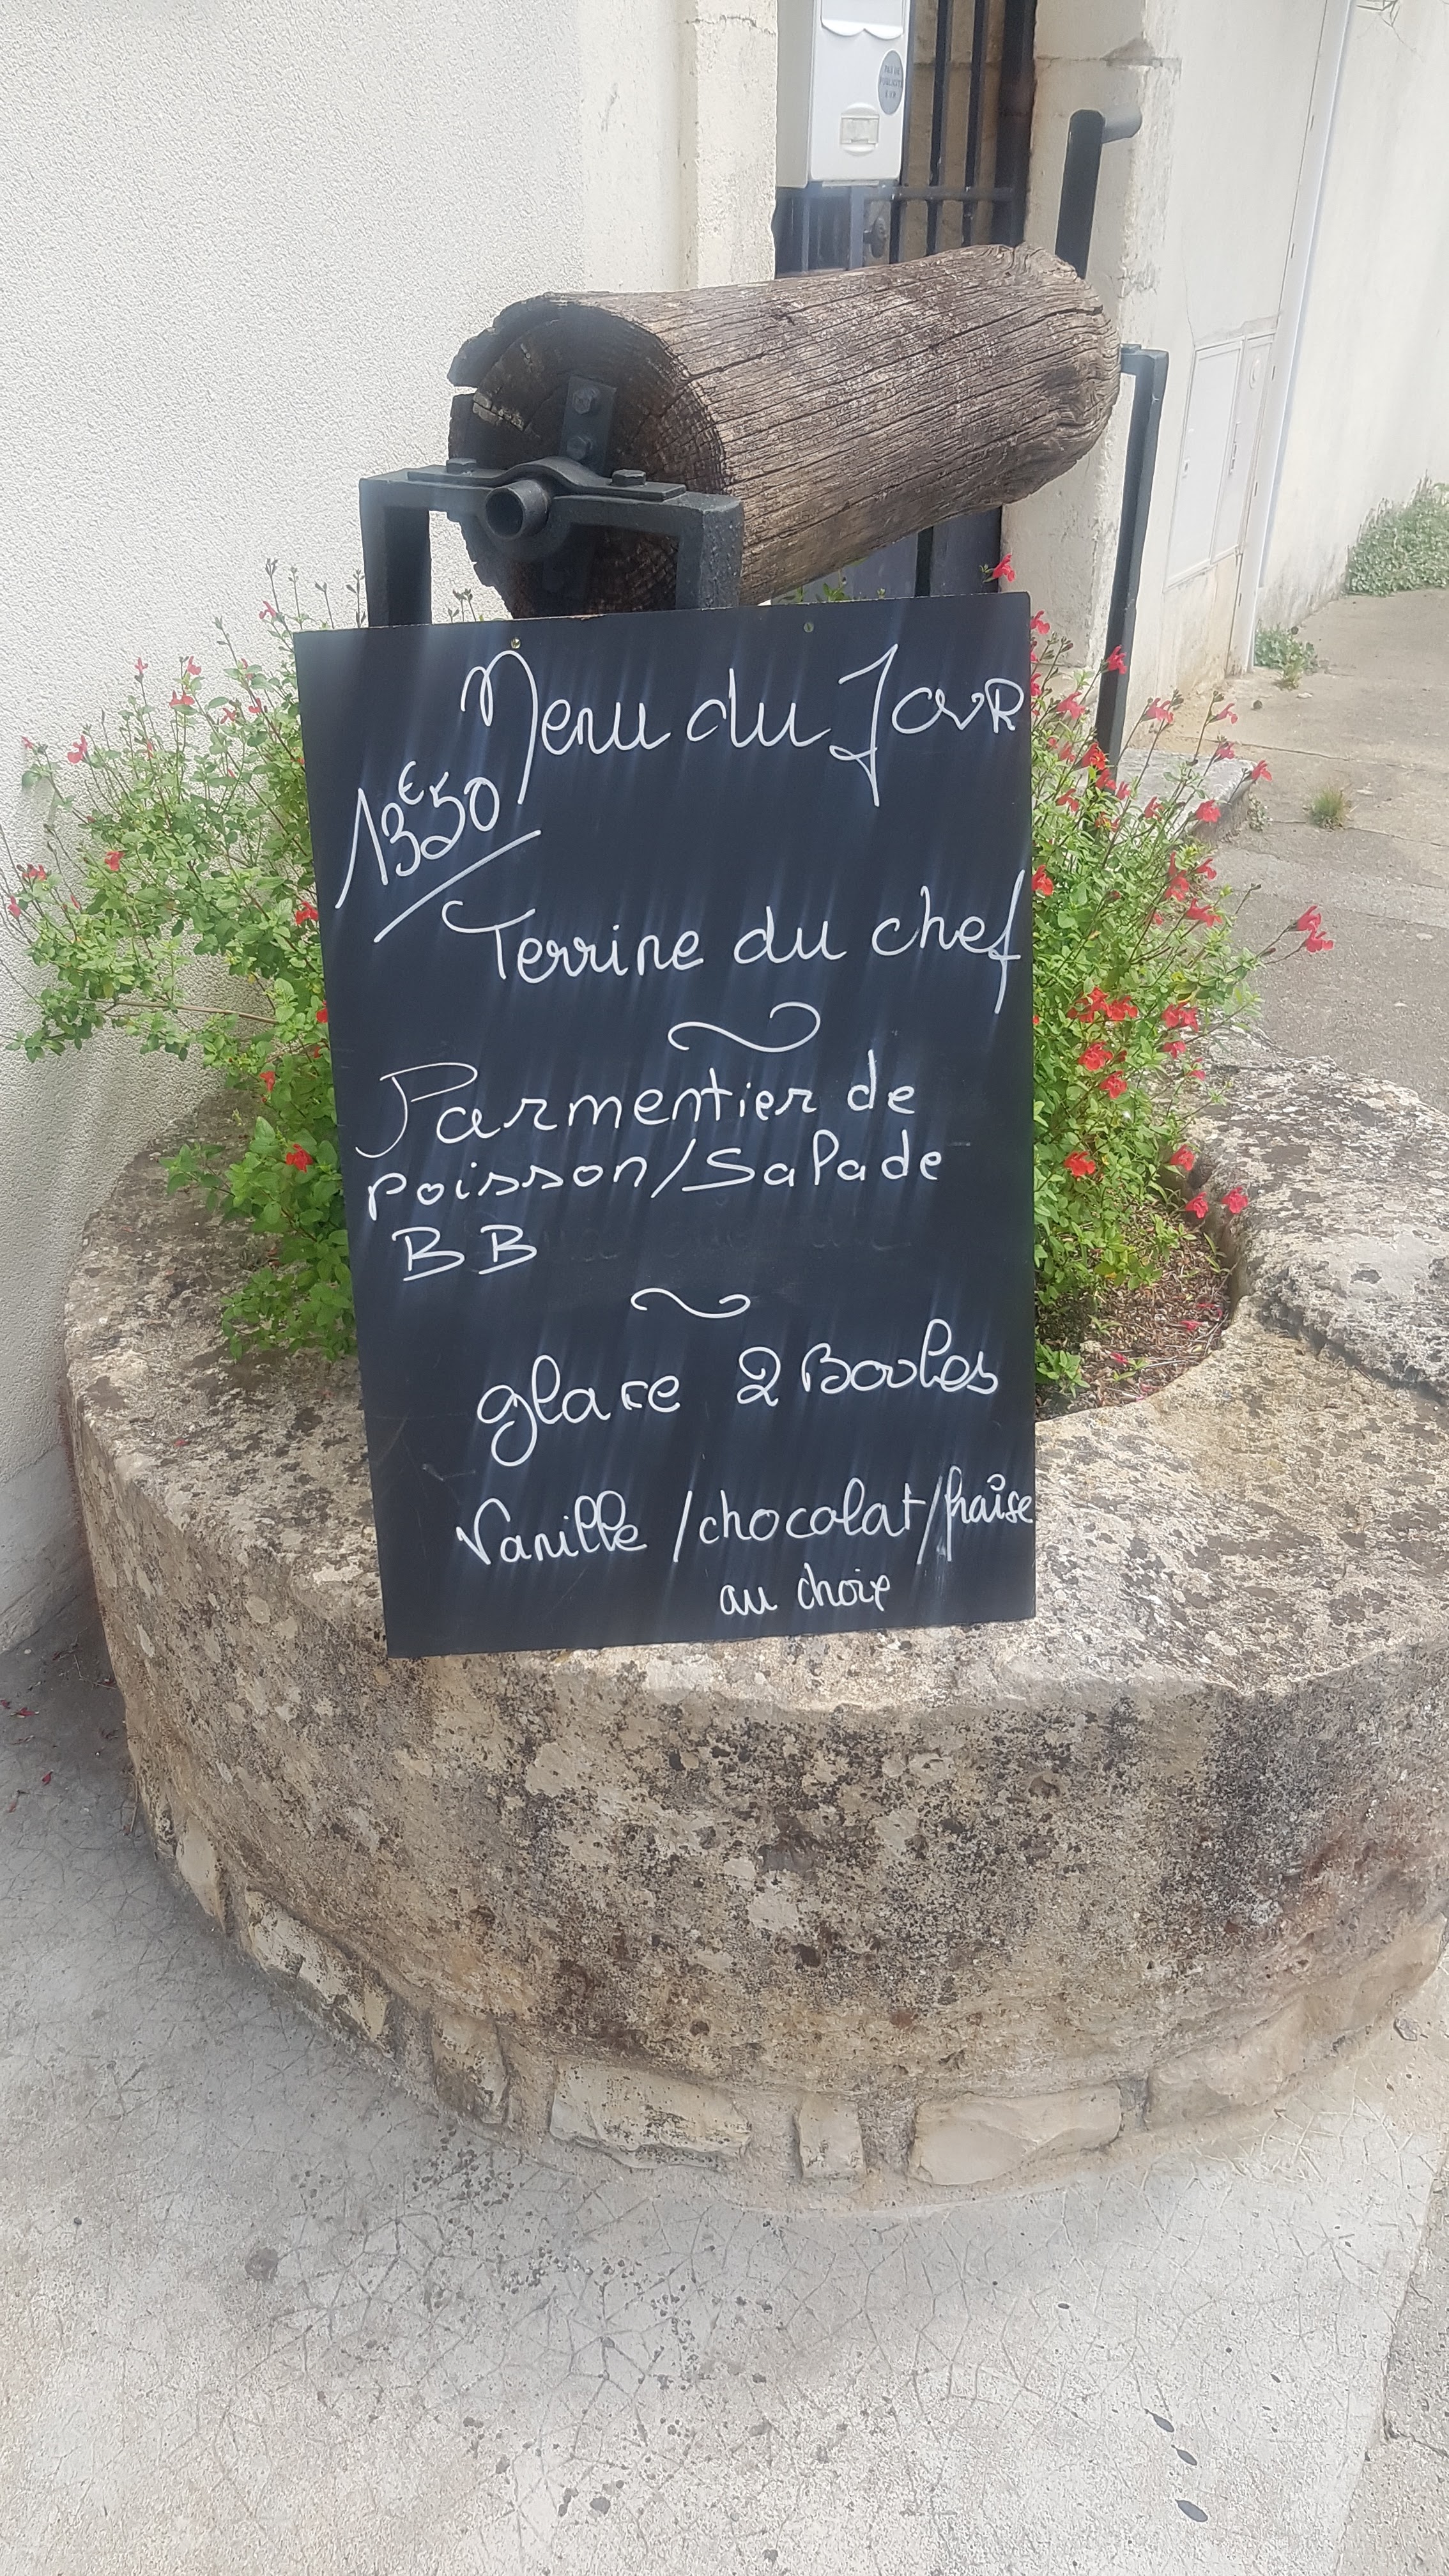 PAS DE
PUBLICITÉ
Menu du JOUR
13€50
Terrine du chef
Parmentier de
poisson/Salade
BB
glace 2 Boules
Vanille/chocolat/fraîse
au choix